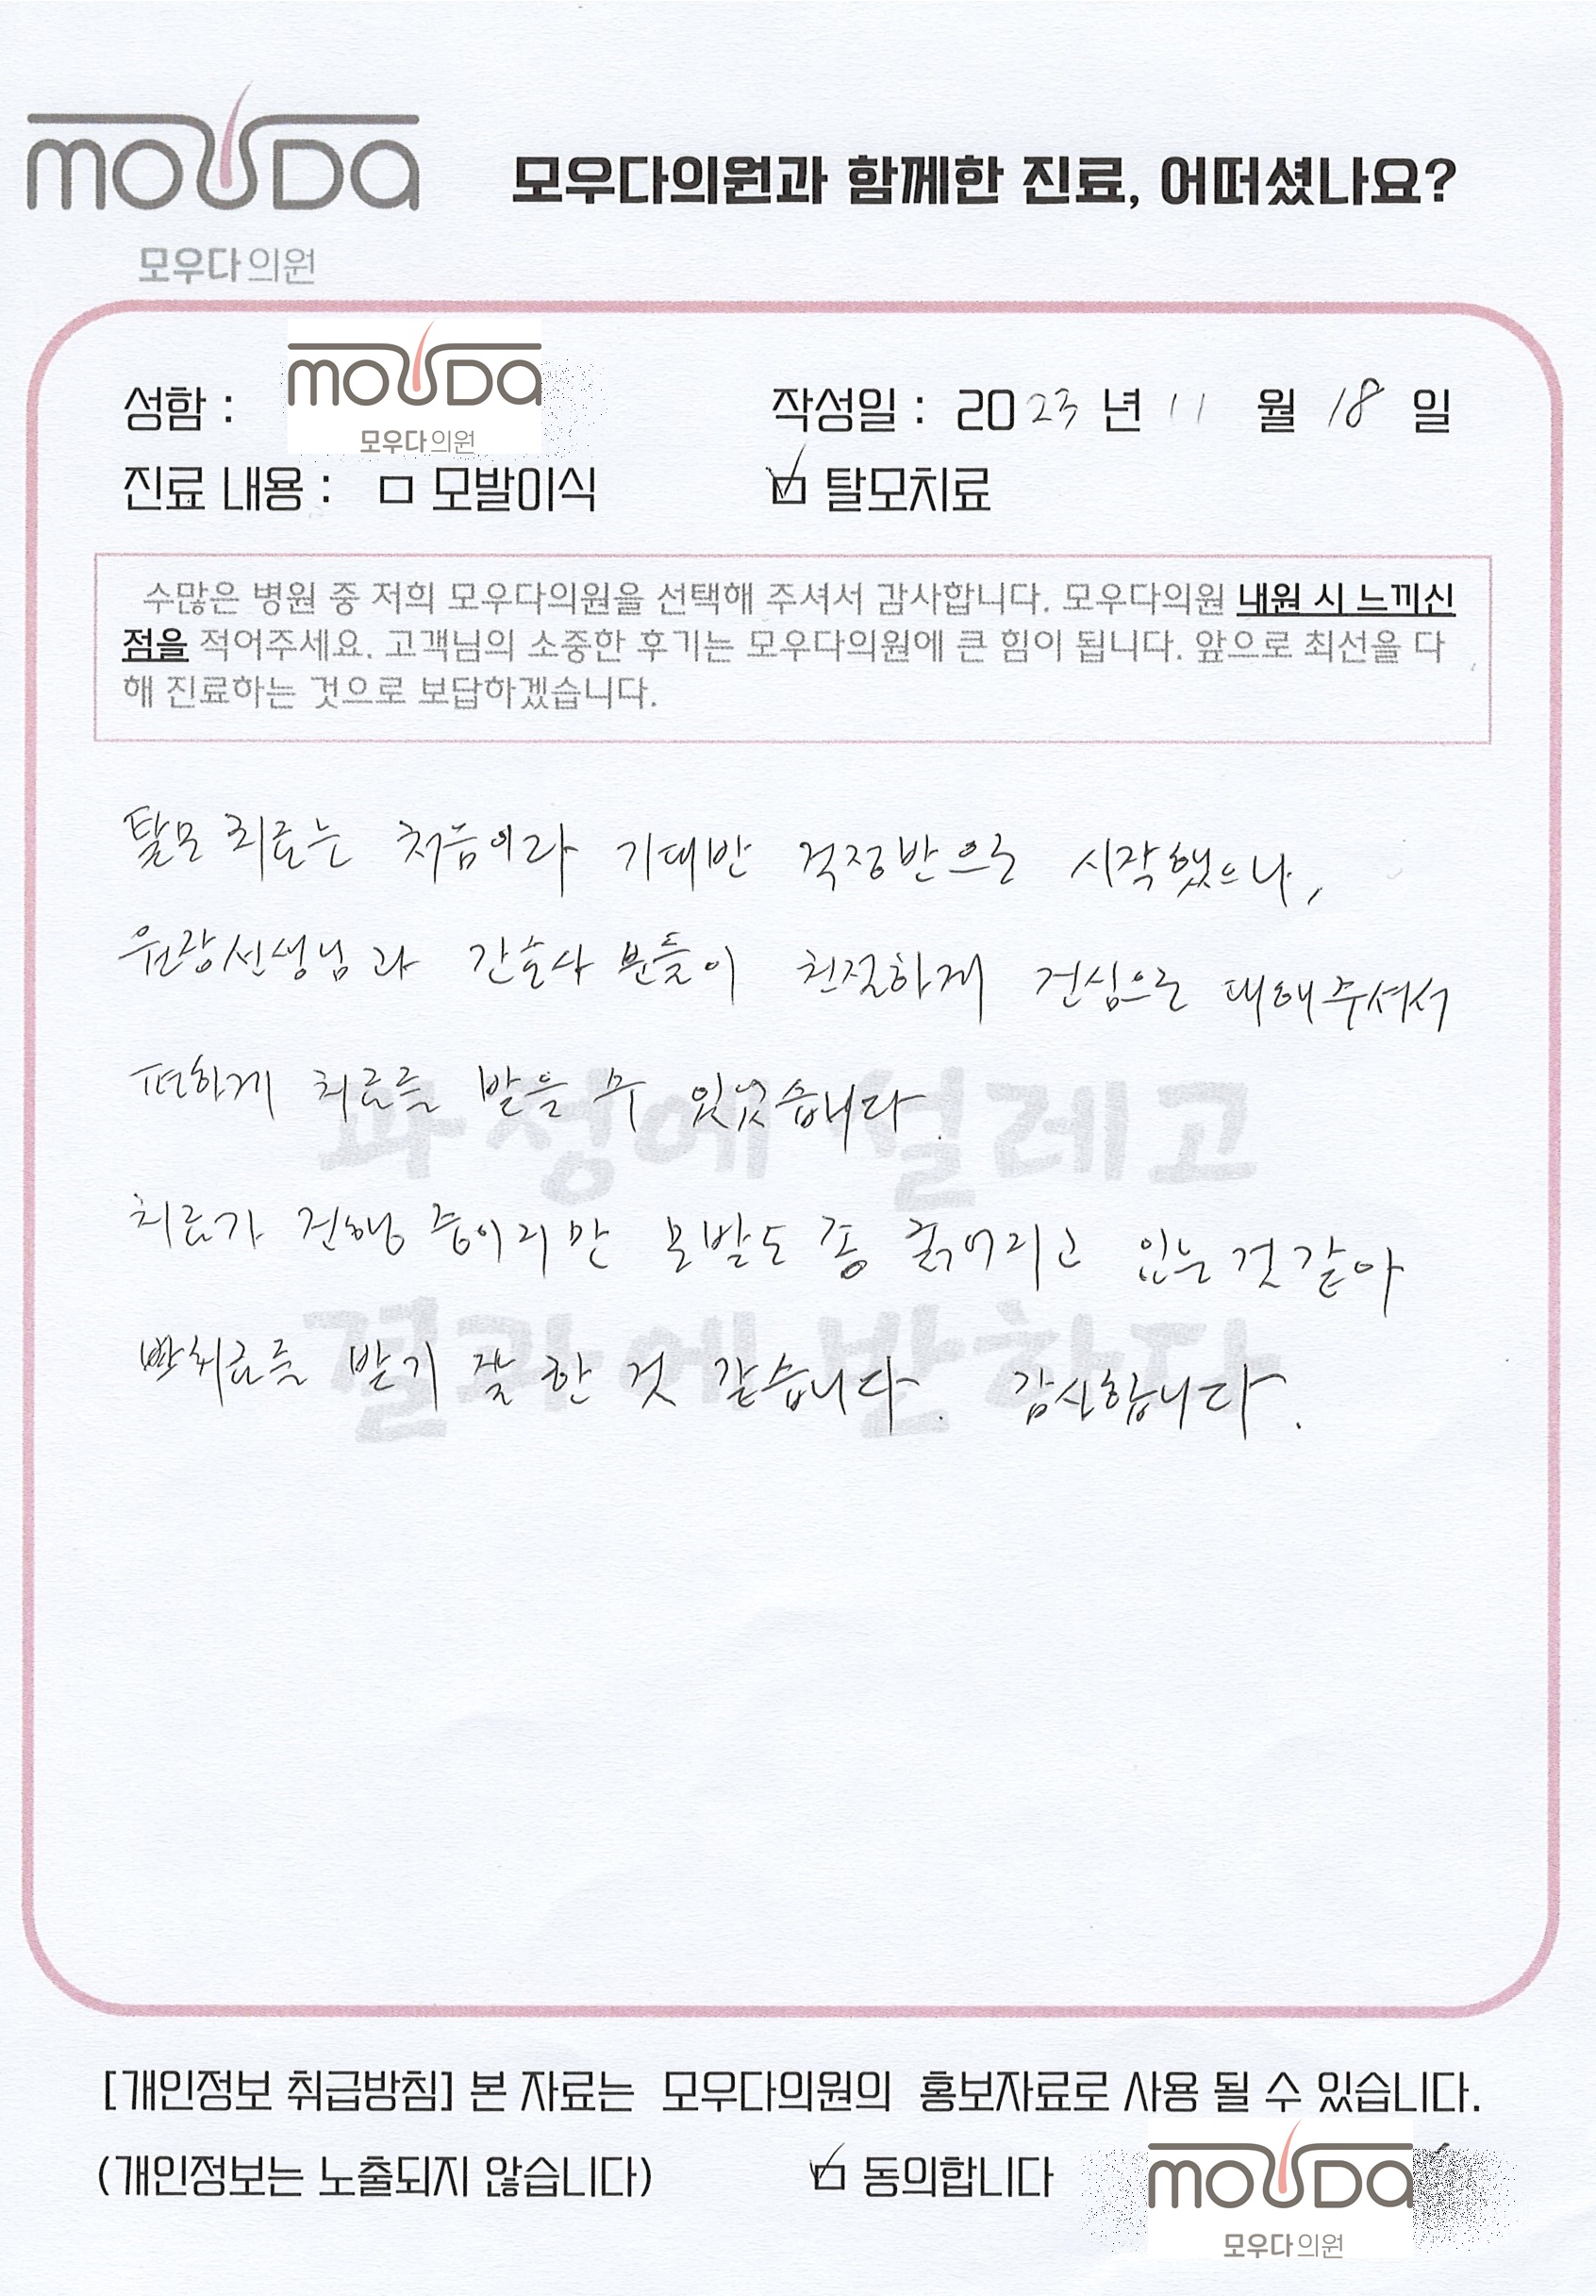 mouDa
모우다의원
모우다의원과 함께한 진료, 어떠셨나요?
성함 : mouDa 작성일 : 2023 년 11 월 18 일
모우다의원
진료 내용 : □ 모발이식 ☑ 탈모치료
수많은 병원 중 저희 모우다의원을 선택해 주셔서 감사합니다. 모우다의원 내원 시 느끼신
점을 적어주세요. 고객님의 소중한 후기는 모우다의원에 큰 힘이 됩니다. 앞으로 최선을 다
해 진료하는 것으로 보답하겠습니다.
탈모 치료는 처음이라 기대반 걱정반으로 시작했으나,
원장선생님과 간호사 분들이 친절하게 진심으로 대해주셔서
편하게 치료를 받을 수 있었습니다.
치료가 진행 중이지만 모발도 좀 굵어지고 있는 것 같아
치료를 받기 잘 한 것 같습니다. 감사합니다.
과정에 설레고
결과에 반하다
[개인정보 취급방침] 본 자료는 모우다의원의 홍보자료로 사용 될 수 있습니다.
(개인정보는 노출되지 않습니다) ☑ 동의합니다 mouDa
모우다의원